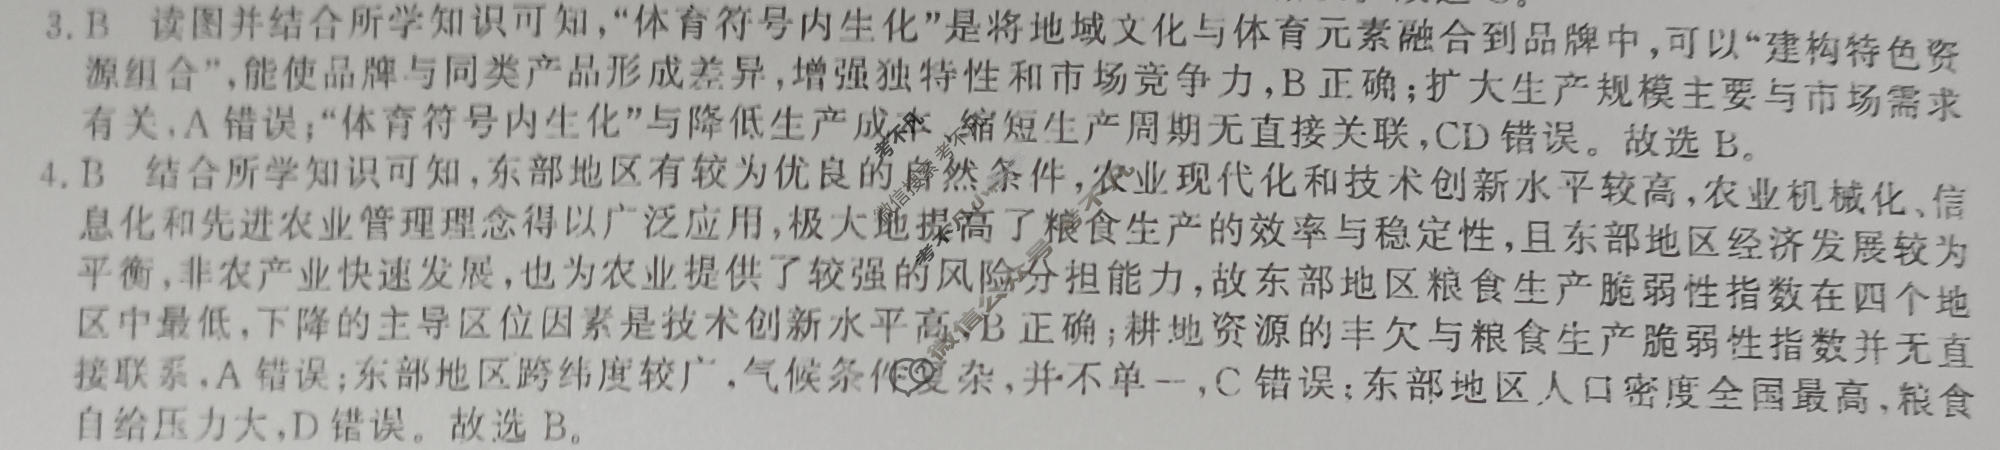 3. B 读图并结合所学知识可知，“体育符号内生化”是将地域文化与体育元素融合到品牌中，可以“建构特色资
源组合”，能使品牌与同类产品形成差异，增强独特性和市场竞争力，B 正确；扩大生产规模主要与市场需求
有关，A 错误；“体育符号内生化”与降低生产成本、缩短生产周期无直接关联，CD 错误。故选 B。
4. B 结合所学知识可知，东部地区有较为优良的自然条件，农业现代化和技术创新水平较高，农业机械化、信
息化和先进农业管理理念得以广泛应用，极大地提高了粮食生产的效率与稳定性，且东部地区经济发展较为
平衡，非农产业快速发展，也为农业提供了较强的风险分担能力，故东部地区粮食生产脆弱性指数在四个地
区中最低，下降的主导区位因素是技术创新水平高，B 正确；耕地资源的丰欠与粮食生产脆弱性指数并无直
接联系，A 错误；东部地区跨纬度较广，气候条件复杂，并不单一，C 错误；东部地区人口密度全国最高，粮食
自给压力大，D 错误。故选 B。